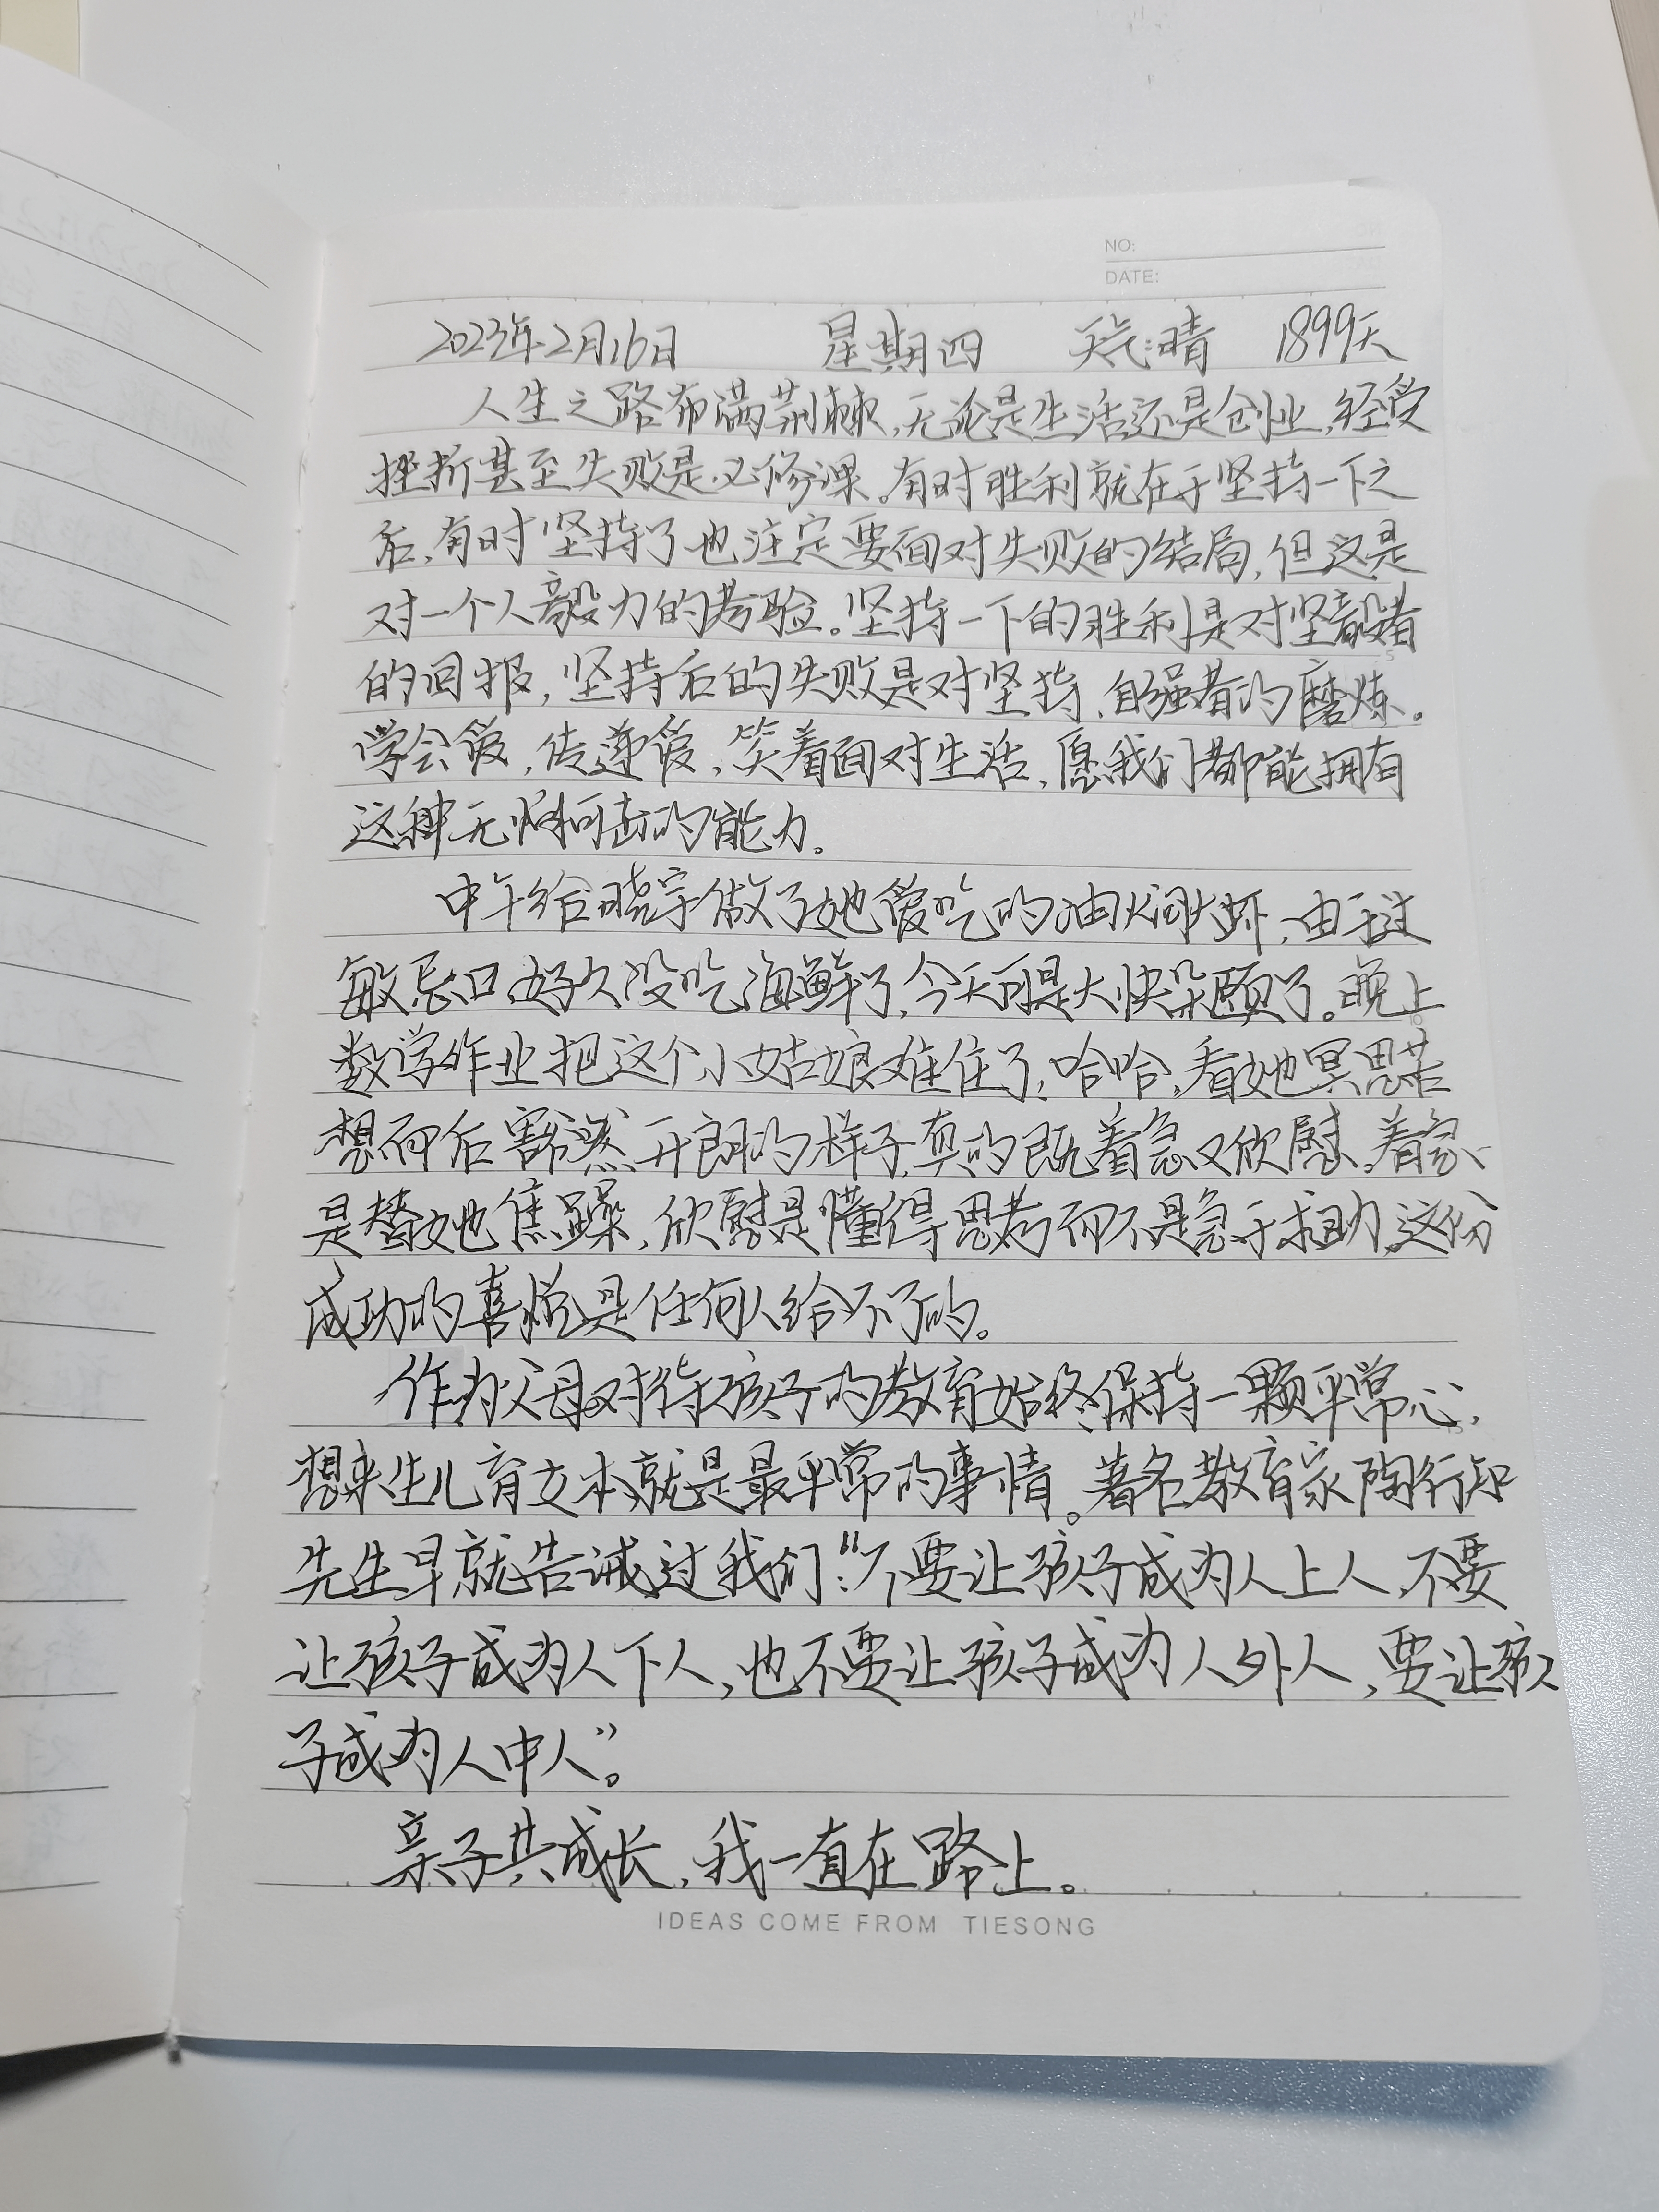 NO:
DATE:
2023年2月16日 星期四 天气:晴 1899天
人生之路布满荆棘,无论是生活还是创业,经受
挫折甚至失败是必修课。有时胜利就在于坚持一下之
后,有时坚持了也注定要面对失败的结局,但这是
对一个人毅力的考验。坚持一下的胜利是对坚毅者
的回报,坚持后的失败是对坚持、自强者的磨炼。
学会爱,传递爱,笑着面对生活,愿我们都能拥有
这种无懈可击的能力。
中午给晓宇做了她爱吃的油焖大虾,由于过
敏忌口好久没吃海鲜了,今天可是大快朵颐了。晚上
数学作业把这个小姑娘难住了,哈哈,看她冥思苦
想而后豁然开朗的样子,真的既着急又欣慰。着急
是替她焦躁,欣慰是懂得思考而不是急于求助,这份
成功的喜悦是任何人给不了的。
作为父母对待孩子的教育始终保持一颗平常心,
想来生儿育女本就是最平常的事情。著名教育家陶行知
先生早就告诫过我们:“不要让孩子成为人上人,不要
让孩子成为人下人,也不要让孩子成为人外人,要让孩
子成为人中人”。
亲子共成长,我一直在路上。
IDEAS COME FROM TIESONG